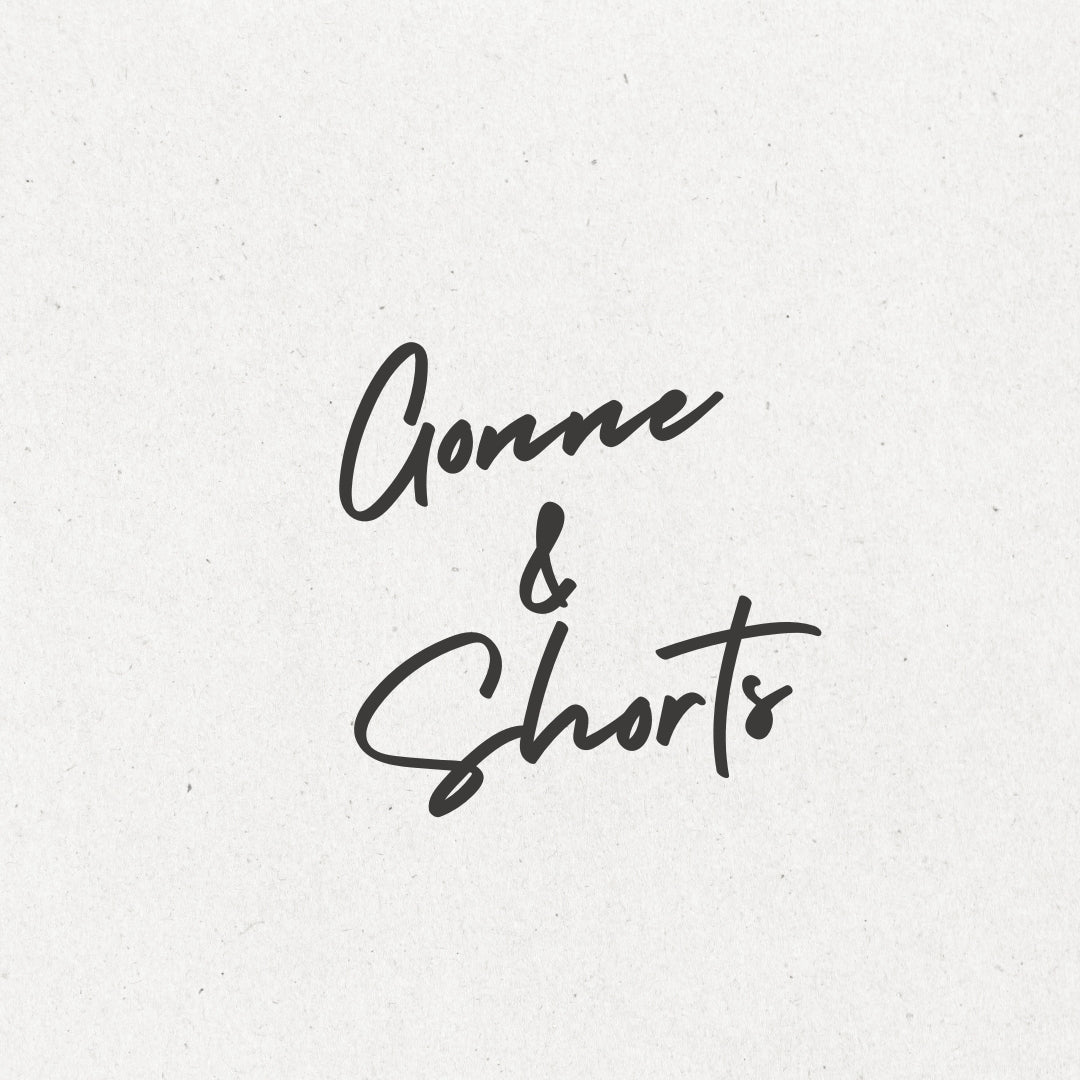 Gonne
&
Shorts